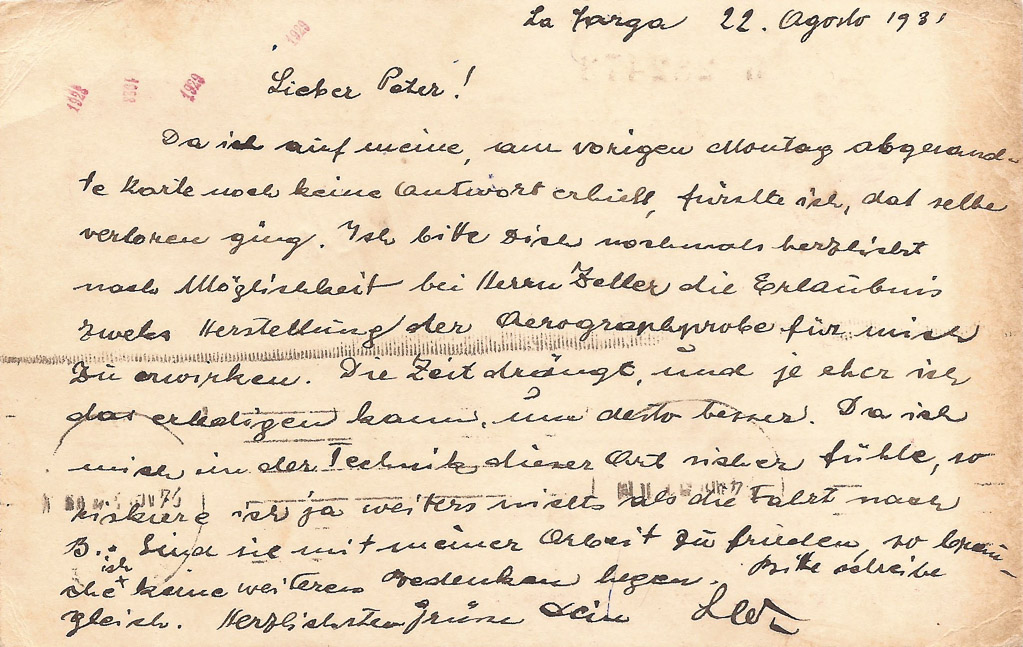 La Farga 22. Agosto 1931
1929
1928
1931
1929
Lieber Peter!
Da ich auf meine, am vorigen Montag abgesand-
te Karte noch keine Antwort erhielt, fürchte ich, dat selbe
verloren ging. Ich bitte Dich nochmals herzlichst
nach Möglichkeit bei Herrn Zeller die Erlaubnis
zwecks Herstellung der Aerographprobe für mich
zu erwirken. Die Zeit drängt, und je eher ich
das erledigen kann, um desto besser. Da ich
mich in der Technik dieser Art sicher fühle, so
riskiere ich ja weiters nichts als die Fahrt nach
B.: Sind sie mit meiner Arbeit zufrieden, so brau-
che ich keine weiteren Bedenken hegen. Bitte schreibe
gleich. Herzlichsten Grüsse Dein